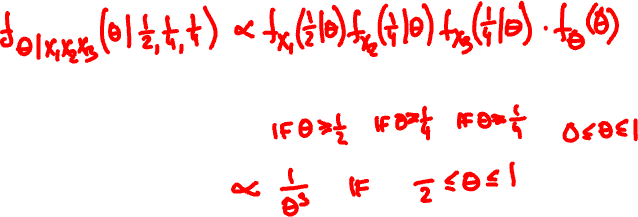 f_{Θ|X₁X₂X₃}(θ|½,¼,¼) ∝ f_{X₁}(½|θ) f_{X₂}(¼|θ) f_{X₃}(¼|θ) · f_Θ(θ)
IF θ≥½ IF θ≥¼ IF θ≥¼ 0≤θ≤1
∝ 1/θ³ IF /2 ≤θ≤ 1